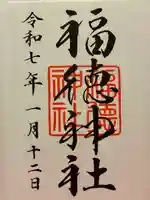 福徳神社
令和七年一月十二日
福徳
神社